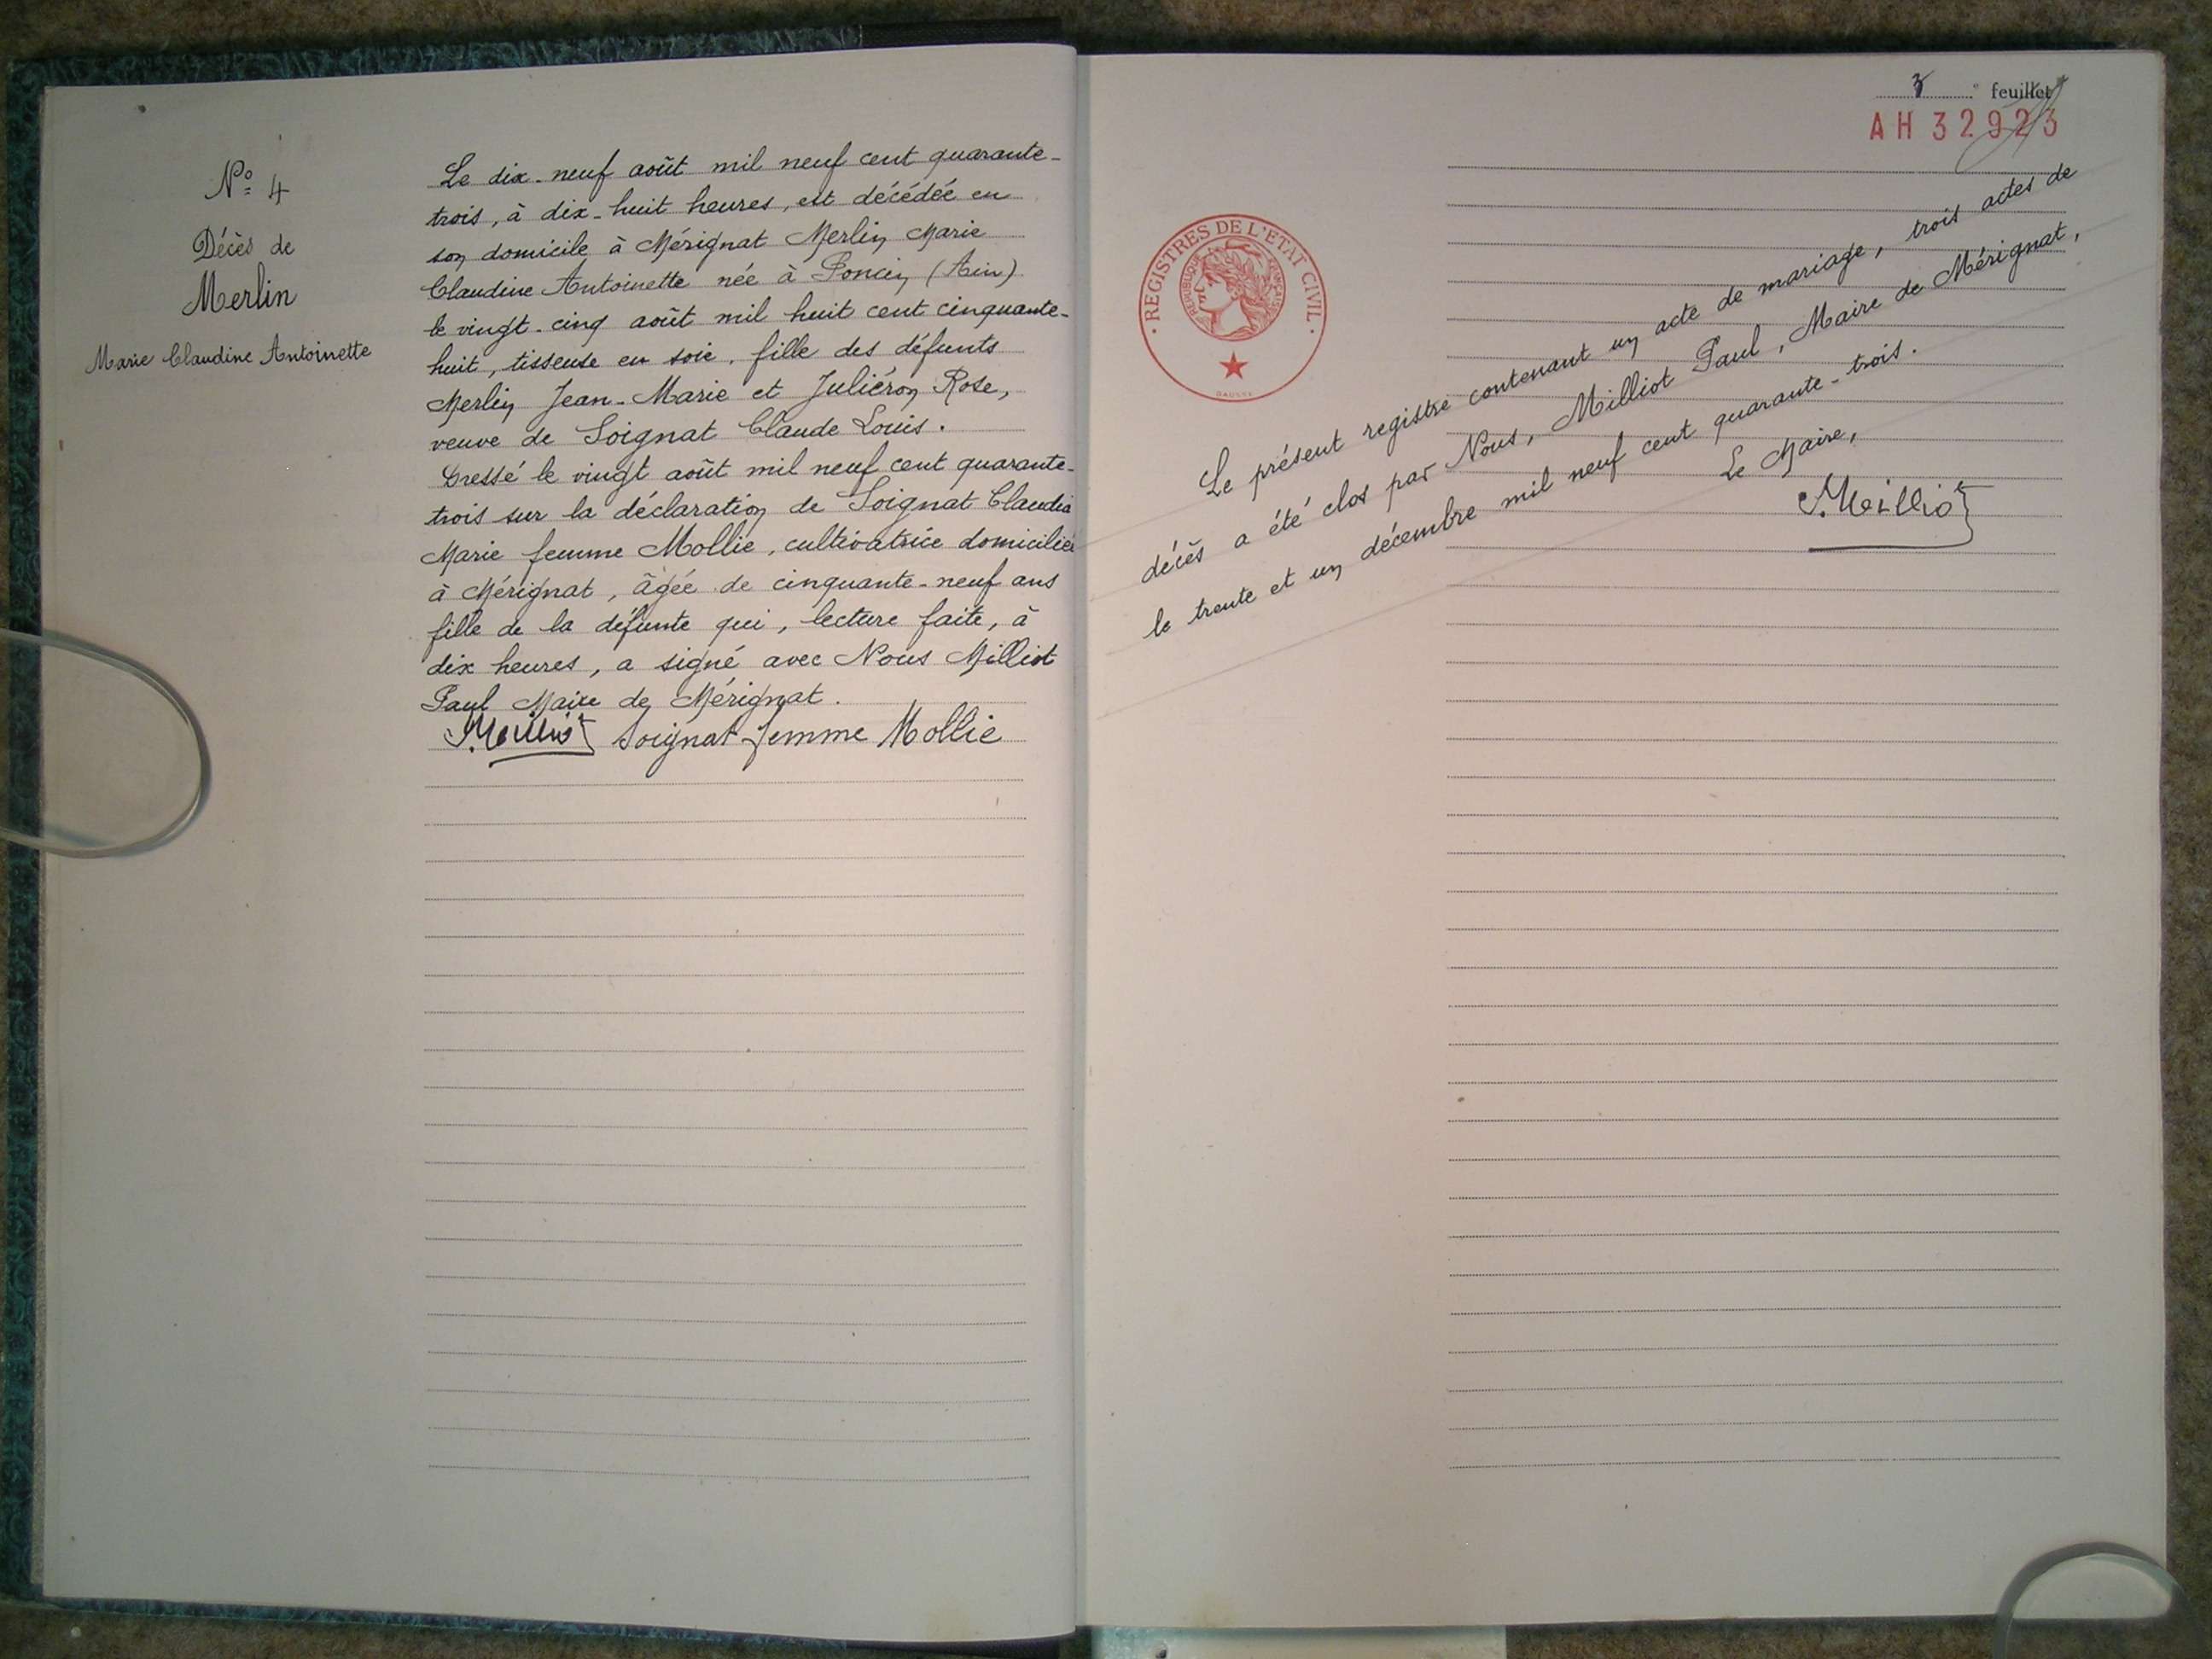 Nº 4
Décès de
Merlin
Marie Claudine Antoinette
Le dix-neuf août mil neuf cent quarante-
trois, à dix-huit heures, est décédée en
son domicile à Mérignat Merlin Marie
Claudine Antoinette née à Poncin (Ain)
le vingt-cinq août mil huit cent cinquante-
huit, tisseuse en soie, fille des défunts
Merlin Jean-Marie et Juliéron Rose,
veuve de Soignat Claude Louis.
Dressé le vingt août mil neuf cent quarante-
trois sur la déclaration de Soignat Claudia
Marie femme Mollie, cultivatrice domiciliée
à Mérignat, âgée de cinquante-neuf ans
fille de la défunte qui, lecture faite, à
dix heures, a signé avec Nous Milliot
Paul Maire de Mérignat.
P. Milliot Soignat femme Mollie
3e feuillet
AH 32923
· REGISTRES DE L'ETAT CIVIL ·
REPUBLIQUE FRANÇAISE
Le présent registre contenant un acte de mariage, trois actes de
décès a été clos par Nous, Milliot Paul, Maire de Mérignat,
le trente et un décembre mil neuf cent quarante-trois.
Le Maire,
P. Milliot